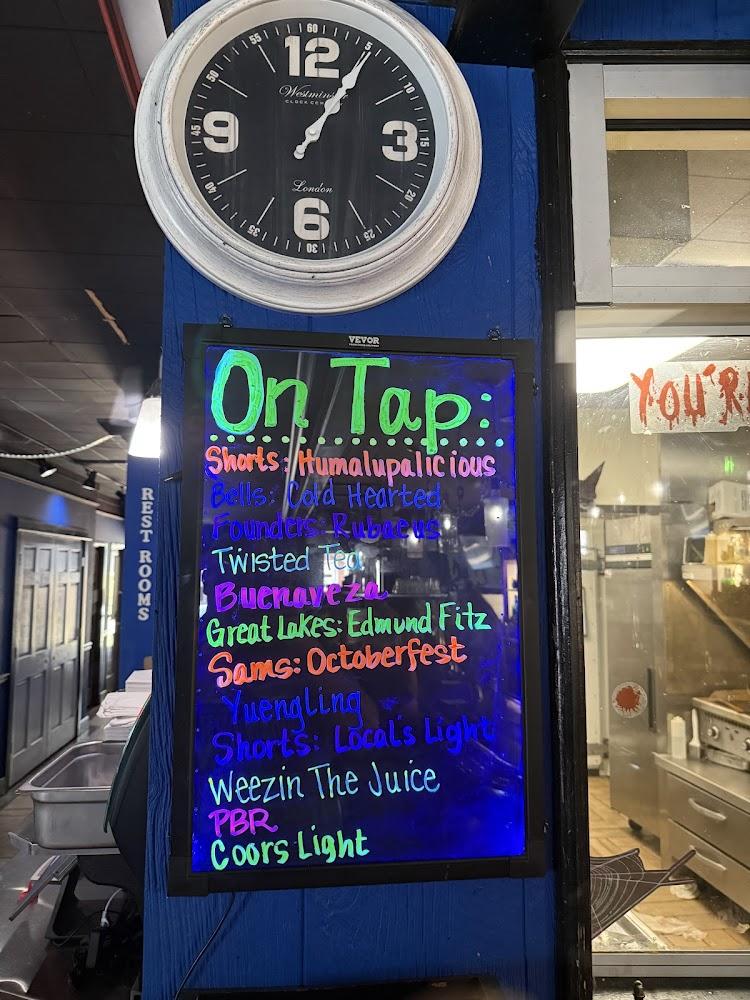 60
5
10
15
20
25
30
35
40
45
50
55
12
3
6
9
Westminster
CLOCK
London
VEVOR
On Tap:
Shorts: Humalupalicious
Bells: Cold Hearted
Founders: Rubaeus
Twisted Tea
Buenaveza
Great Lakes: Edmund Fitz
Sams: Octoberfest
Yuengling
Shorts: Local's Light
Weezin The Juice
PBR
Coors Light
REST ROOMS
YOU'R